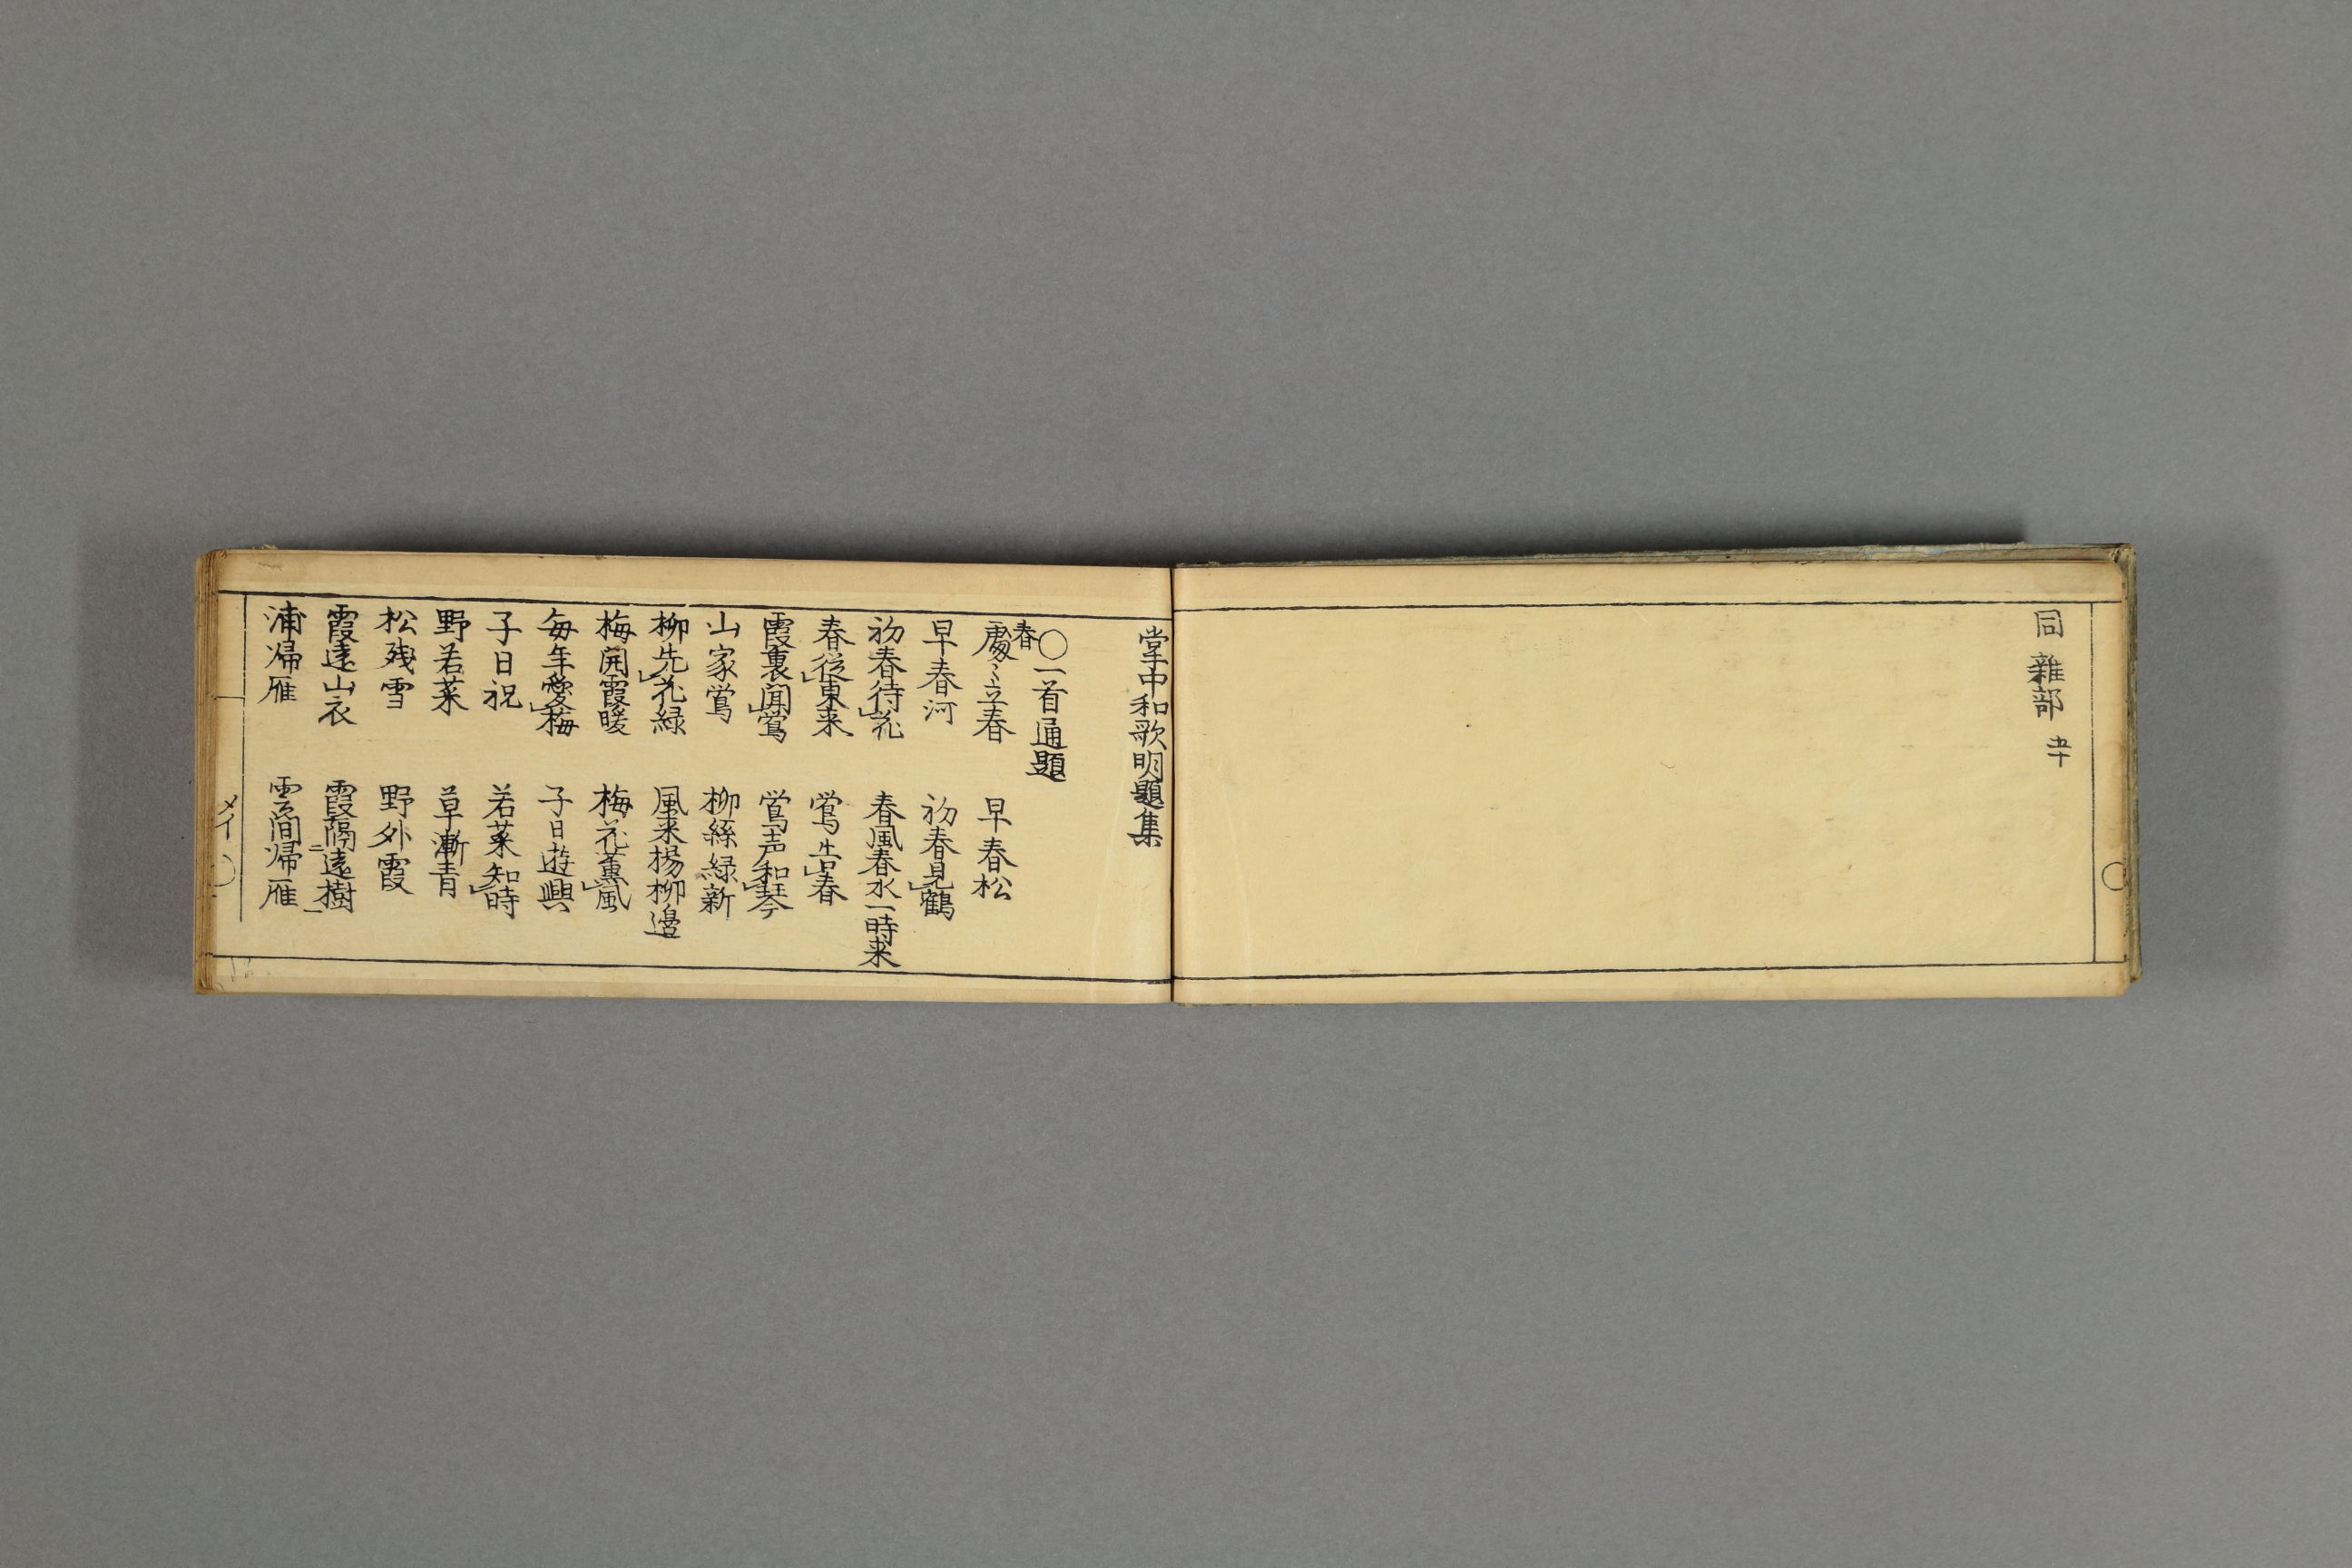 同 雜部 五十
掌中和歌明題集
○一首通題
春
處〻立春 早春松
早春河 初春見鶴
初春待花 春風春水一時来
春從東来 鴬告春
霞裏聞鴬 鴬声和琴
山家鴬 柳絲緑新
柳先花緑 風来楊柳邊
梅開霞暖 梅花薫風
毎年愛梅 子日遊興
子日祝 若菜知時
野若菜 草漸青
松残雪 野外霞
霞遠山衣 霞隔遠樹
浦帰雁 雲間帰雁
メイ ○